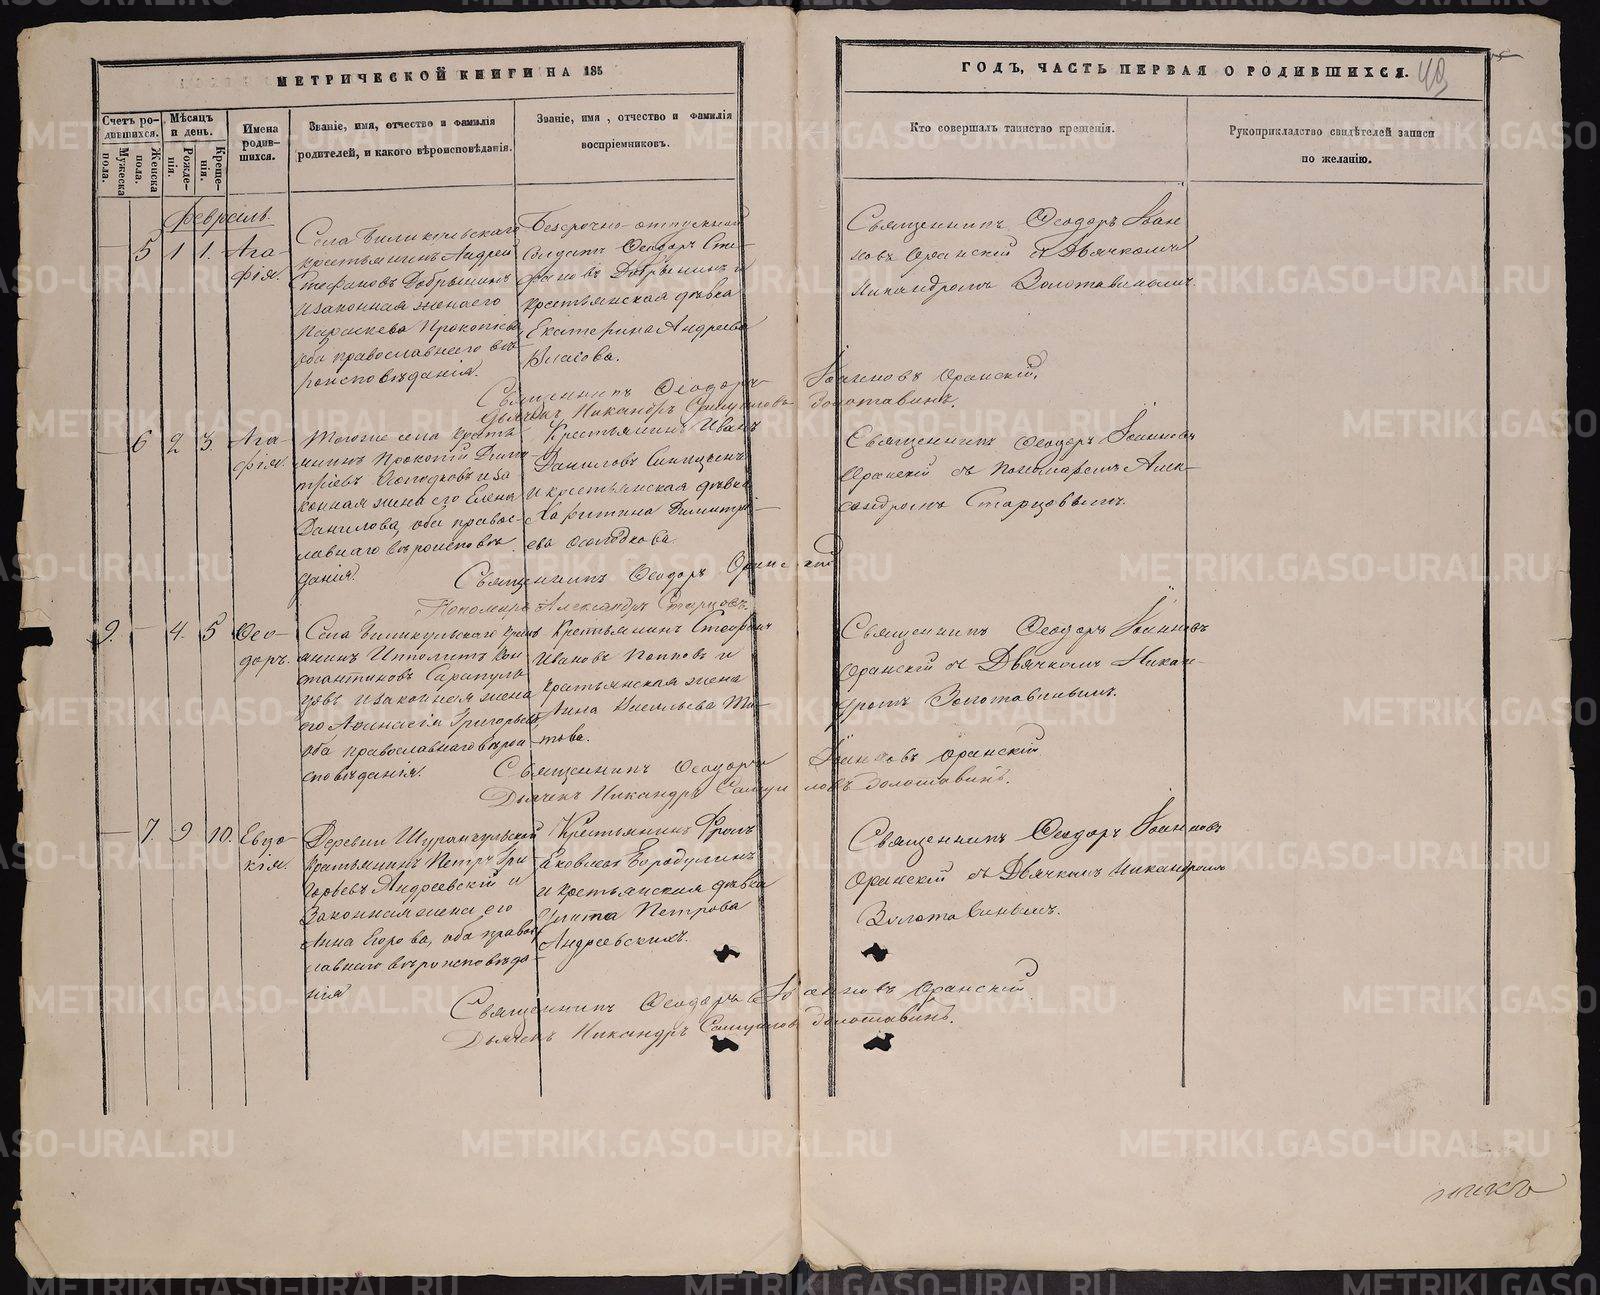 МЕТРИЧЕСКОЙ КНИГИ НА 185
ГОДЪ, ЧАСТЬ ПЕРВАЯ О РОДИВШИХСЯ.
49
Счетъ родившихся.
Мужеска пола.
Женска пола.
Мѣсяцъ и день.
Рожденія.
Крещенія.
Имена родившихся.
Званіе, имя, отчество и фамилія
родителей, и какого вѣроисповѣданія.
Званіе, имя, отчество и фамилія
воспріемниковъ.
Кто совершалъ таинство крещенія.
Рукоприкладство свидѣтелей записи
по желанію.
Февраль.
5 1 1. Агафія.
Села
крестьянинъ Андрей
Стефановъ Добрынинъ
и законная жена его
Параскева Прокопіева
оба православнаго вѣ-
роисповѣданія.
Безсрочно отпускной
солдатъ Ѳеодоръ Сте-
фановъ Добрынинъ и
крестьянская дѣвка
Екатерина Андреева
Власова.
Священникъ Ѳеодоръ Іоан-
новъ Оранскій съ Дьячкомъ
Никандромъ Золотавинымъ.
Священникъ Ѳеодоръ Іоанновъ Оранскій.
Дьячекъ Никандръ Самуиловъ Золотавинъ.
6 2 3. Агафія.
Тогоже села кресть-
янинъ Прокопій Дими-
тріевъ Осолодковъ и за-
конная жена его Елена
Данилова, оба правос-
лавнаго вѣроисповѣ-
данія.
Крестьянинъ Иванъ
Даниловъ Синицынъ
и крестьянская дѣвка
Харитина Димитрі-
ева Осолодкова.
Священникъ Ѳеодоръ Іоанновъ
Оранскій съ пономаремъ Алек-
сандромъ Старцовымъ.
Священникъ Ѳеодоръ Оранскій
Пономарь Александръ Старцовъ.
9. 4. 5 Ѳеодоръ.
Села Биликульскаго крест
янинъ Ипполитъ Кон
стантиновъ Сарапуль
цовъ и законная жена
его Афанасія Григорьева,
оба православнаго вѣрои
сповѣданія.
Крестьянинъ
Ивановъ Поповъ и
крестьянская жена
Анна Васильева Ти-
това.
Священникъ Ѳеодоръ Іоанновъ
Оранскій съ Дьячкомъ Никан-
дромъ Золотавинымъ.
Священникъ Ѳеодоръ Іоанновъ Оранскій
Дьячекъ Никандръ Самуиловъ Золотавинъ.
7. 9 10. Евдокія.
Деревни
крестьянинъ Петръ Гри
горьевъ Андреевскій и
законная жена его
Анна Егорова, оба правос
лавнаго вѣроисповѣда-
нія
Крестьянинъ
Яковлевъ Бородулинъ
и крестьянская дѣвка
Петрова
Андреевскихъ.
Священникъ Ѳеодоръ Іоанновъ
Оранскій съ Дьячкомъ Никандромъ
Золотавинымъ.
Священникъ Ѳеодоръ Іоанновъ Оранскій
Дьячекъ Никандръ Самуиловъ Золотавинъ.
METRIKI.GASO-URAL.RU